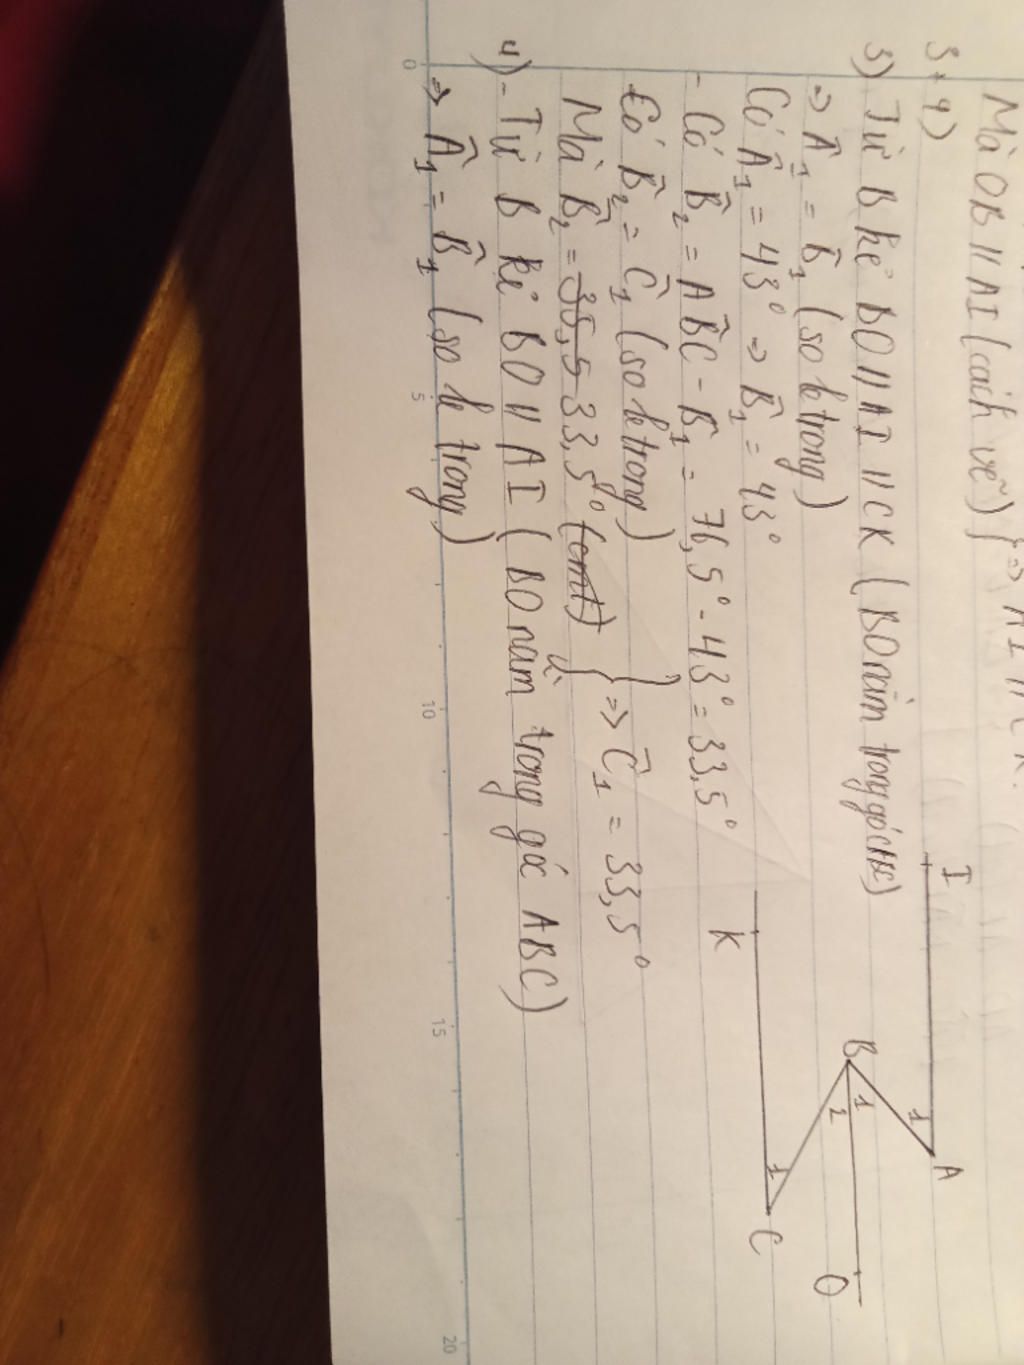 Mà OB // AI (cách vẽ) } => AI // CK.
3+4)
3) Từ B kẻ BO // AI // CK (BO nằm trong góc ABC)
=> Â1 = B̂1 (so le trong)
Có Â1 = 43° => B̂1 = 43°
- Có B̂2 = AB̂C - B̂1 = 76,5° - 43° = 33,5°
Có B̂2 = Ĉ1 (so le trong)
Mà B̂2 = 35,5 33,5° (cmt) } => Ĉ1 = 33,5°
4) - Từ B kẻ BO // AI (BO nằm trong góc ABC)
=> Â1 = B̂1 (so le trong)
I
1
A
B
1
2
O
K
1
C
0 5 10 15 20